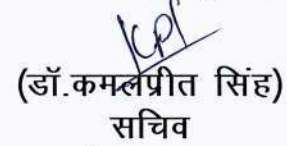 (डॉ.कमलप्रीत सिंह)
सचिव